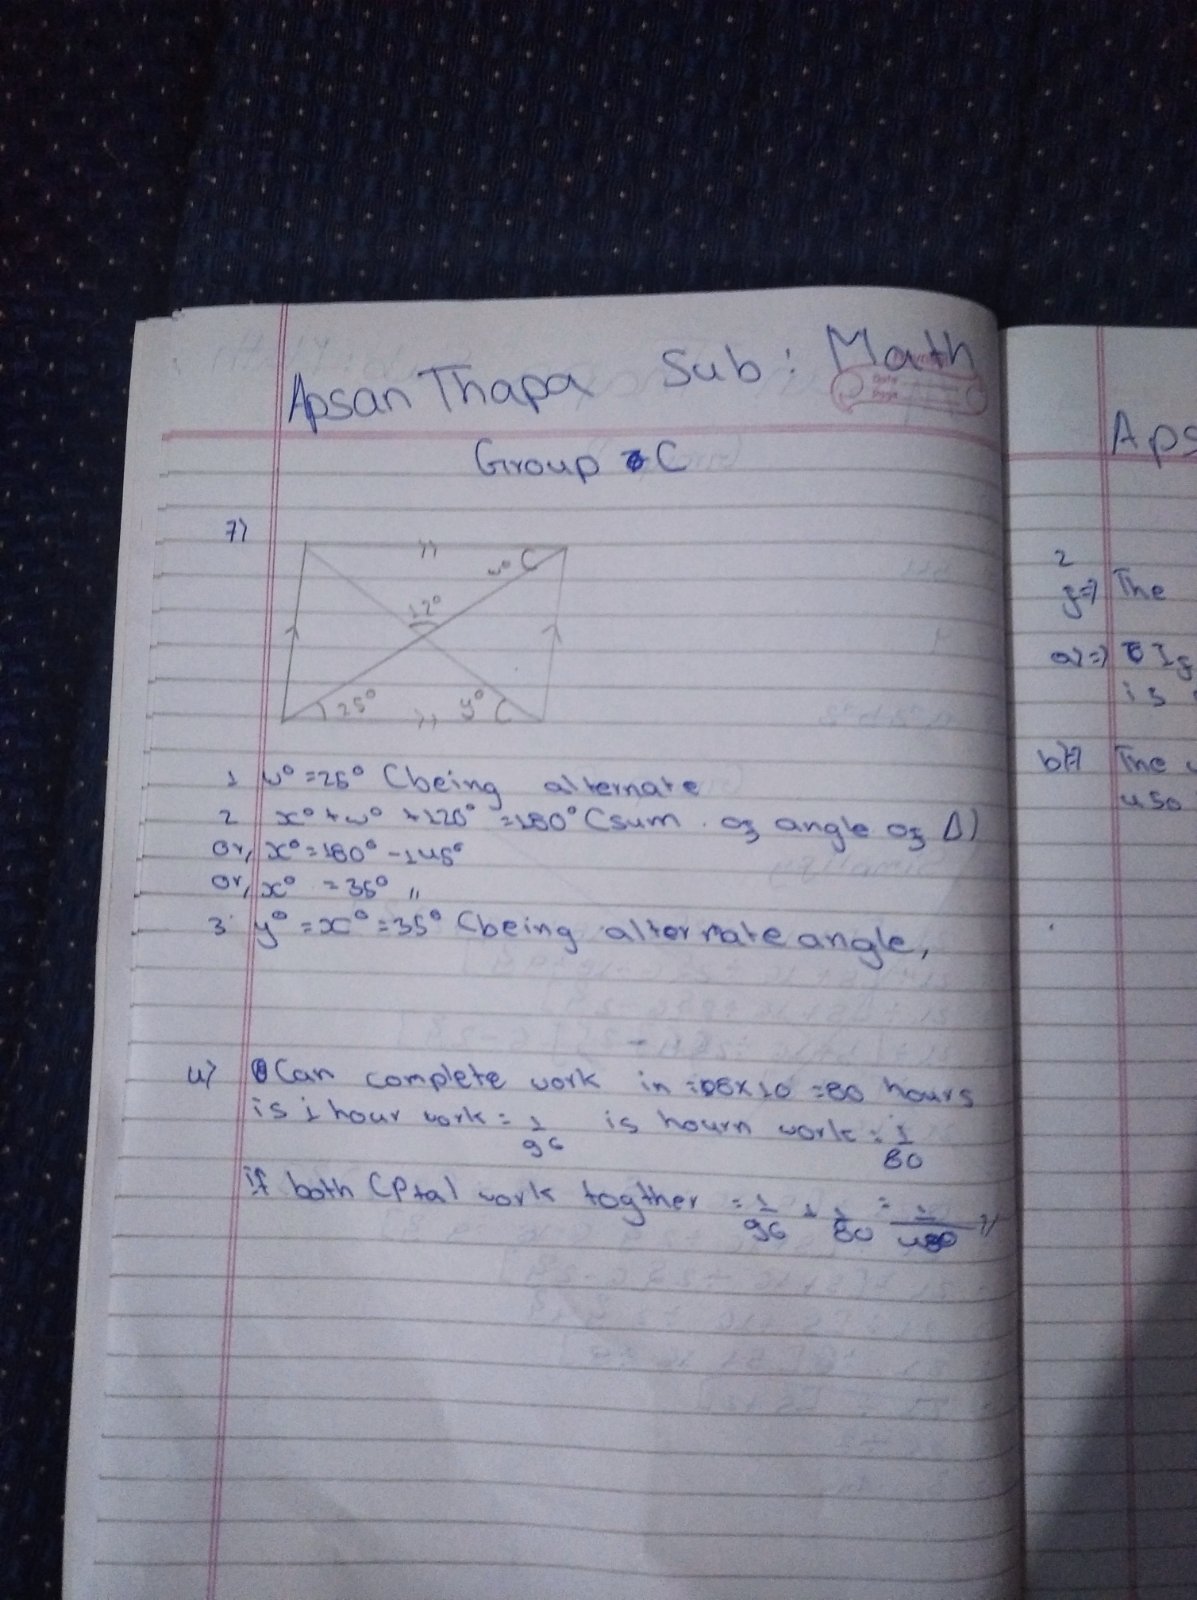 Apsan Thapa Sub: Math
Group C
7)
w°
12°
25°
y°
1 w° = 25° (being alternate
2 x° + w° + 120° = 180° (sum of angle of Δ)
or, x° = 180° - 145°
or, x° = 35° "
3. y° = x° = 35° (being alternate angle,
4) Can complete work in = 08 x 10 = 80 hours
is 1 hour work = 1/96 is hourn work = 1/80
if both work togther = 1/96 + 1/80 = 1/480 "
Aps
2
The
a) =>
is
b) The
uso